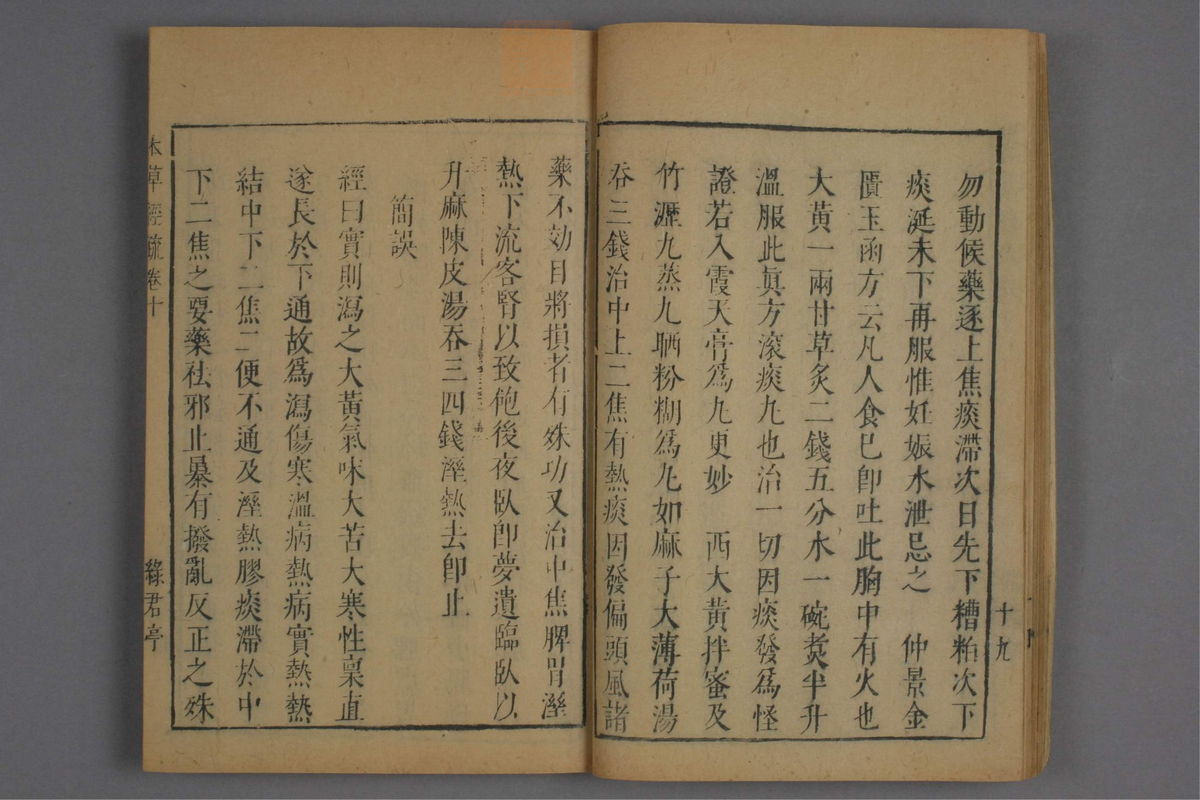 十九
勿動候藥逐上焦痰滯次日先下糟粕次下
痰涎未下再服惟妊娠水泄忌之　仲景金
匱玉函方云凡人食已卽吐此胸中有火也
大黃一兩甘草炙二錢五分水一碗煑半升
溫服此眞方滚痰丸也治一切因痰發爲怪
證若入霞天膏爲丸更妙　西大黃拌蜜及
竹瀝九蒸九晒粉糊爲丸如麻子大薄荷湯
吞三錢治中上二焦有熱痰因發偏頭風諸
藥不効目將損者有殊功又治中焦脾胃溼
熱下流客腎以致飽後夜臥卽夢遺臨臥以
升麻陳皮湯吞三四錢溼熱去卽止
簡誤
經曰實則瀉之大黃氣味大苦大寒性稟直
遂長於下通故爲瀉傷寒溫病熱病實熱熱
結中下二焦二便不通及溼熱膠痰滯於中
下二焦之要藥祛邪止暴有撥亂反正之殊
本草經疏卷十
綠君亭